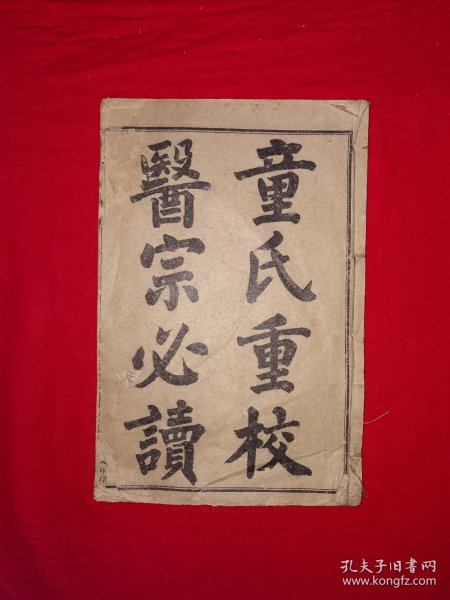 童氏重校
醫宗必讀
孔夫子旧书网
www.kongfz.com